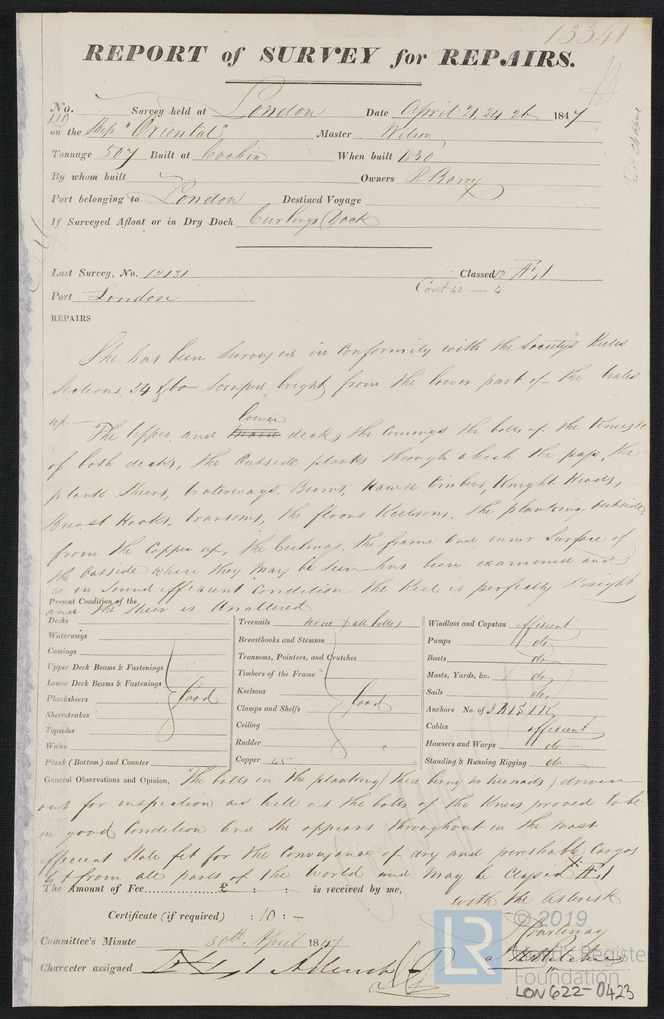 13341
REPORT of SURVEY for REPAIRS.
No. 110 Survey held at London Date April 21, 24 26 1847
on the Ship "Oriental" Master Wilson
Tonnage 507 Built at Cochin When built 1830
By whom built Owners R Barry
Port belonging to London Destined Voyage
If Surveyed Afloat or in Dry Dock Curlings Dock
Last Survey, No. 12131 Classed 12 Æ 1
Port London Cont 42 — 4
REPAIRS
She has been Surveyed in Conformity with the Society's Rules
Sections 34 & 60 Scraped bright from the lower part of the Wales
up —
The Upper and lower decks, the Comings the bolts of the Knees
of both decks, the Outside planks through which the pass, the
plank Sheers, Waterways, Beams, Hawse timbers, Knight Heads,
Breast Hooks, transoms, the floors Keelsons, the planking outside
from the Copper up, the Ceilings, the frame and inner Surface of
the Outside where they may be seen has been examined and
is in Sound efficient Condition the Keel is perfectly Straight
and the Sheer is Unaltered
Present Condition of the
Decks
Waterways
Comings
Upper Deck Beams & Fastenings
Lower Deck Beams & Fastenings
Planksheers Good
Sheerstrakes
Topsides
Wales
Plank (Bottom) and Counter
Treenails none (all bolts)
Breasthooks and Stemson
Transoms, Pointers, and Crutches
Timbers of the Frame
Keelsons
Clamps and Shelfs Good
Ceiling
Rudder
Copper 45
Windlass and Capstan efficient
Pumps do
Boats do
Masts, Yards, &c. do
Sails do
Anchors No. of 3 B 1 S 1 K
Cables efficient
Hausers and Warps do
Standing & Running Rigging do
General Observations and Opinion, The bolts in the planking (there being no treenails) driven
out for inspection as well as the bolts of the Knees proved to be
in good Condition and she appears throughout in the most
efficient State fit for the Conveyance of dry and perishable Cargos
to & from all parts of the World and may be Classed Æ 1
with the Asterisk
The Amount of Fee £ : : is received by me,
Certificate (if required) : 10 : —
Courtenay
Committee's Minute 30th April 1847
Character assigned Æ 1
LR
© 2019
Lloyd's Register
Foundation
LON622-0423